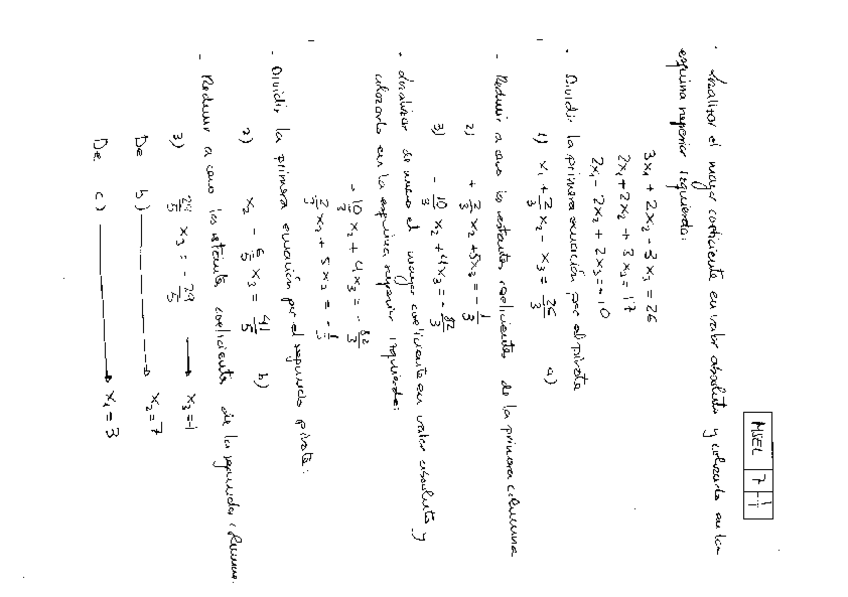 MSEL 7-1
· Localizar el mayor coeficiente en valor absoluto y colocarlo en la
esquina superior izquierda:
3x₁ + 2x₂ - 3x₃ = 26
2x₁ + 2x₂ + 3x₃ = 17
2x₁ - 2x₂ + 2x₃ = -10
· Dividir la primera ecuación por el pivote
1) x₁ + 2/3 x₂ - x₃ = 26/3 a)
- Reducir a cero los restantes coeficientes de la primera columna
2) + 2/3 x₂ + 5x₃ = - 1/3
3) - 10/3 x₂ + 4x₃ = - 82/3
· Localizar de nuevo el mayor coeficiente en valor absoluto y
colocarlo en la esquina superior izquierda:
- 10/3 x₂ + 4x₃ = - 82/3
2/3 x₂ + 5x₃ = - 1/3
· Dividir la primera ecuación por el segundo pivote:
2) x₂ - 6/5 x₃ = 41/5 b)
- Reducir a cero los restantes coeficientes de la segunda columna.
3) 29/5 x₃ = - 29/5 → x₃ = -1
De b) → x₂ = 7
De c) → x₁ = 3